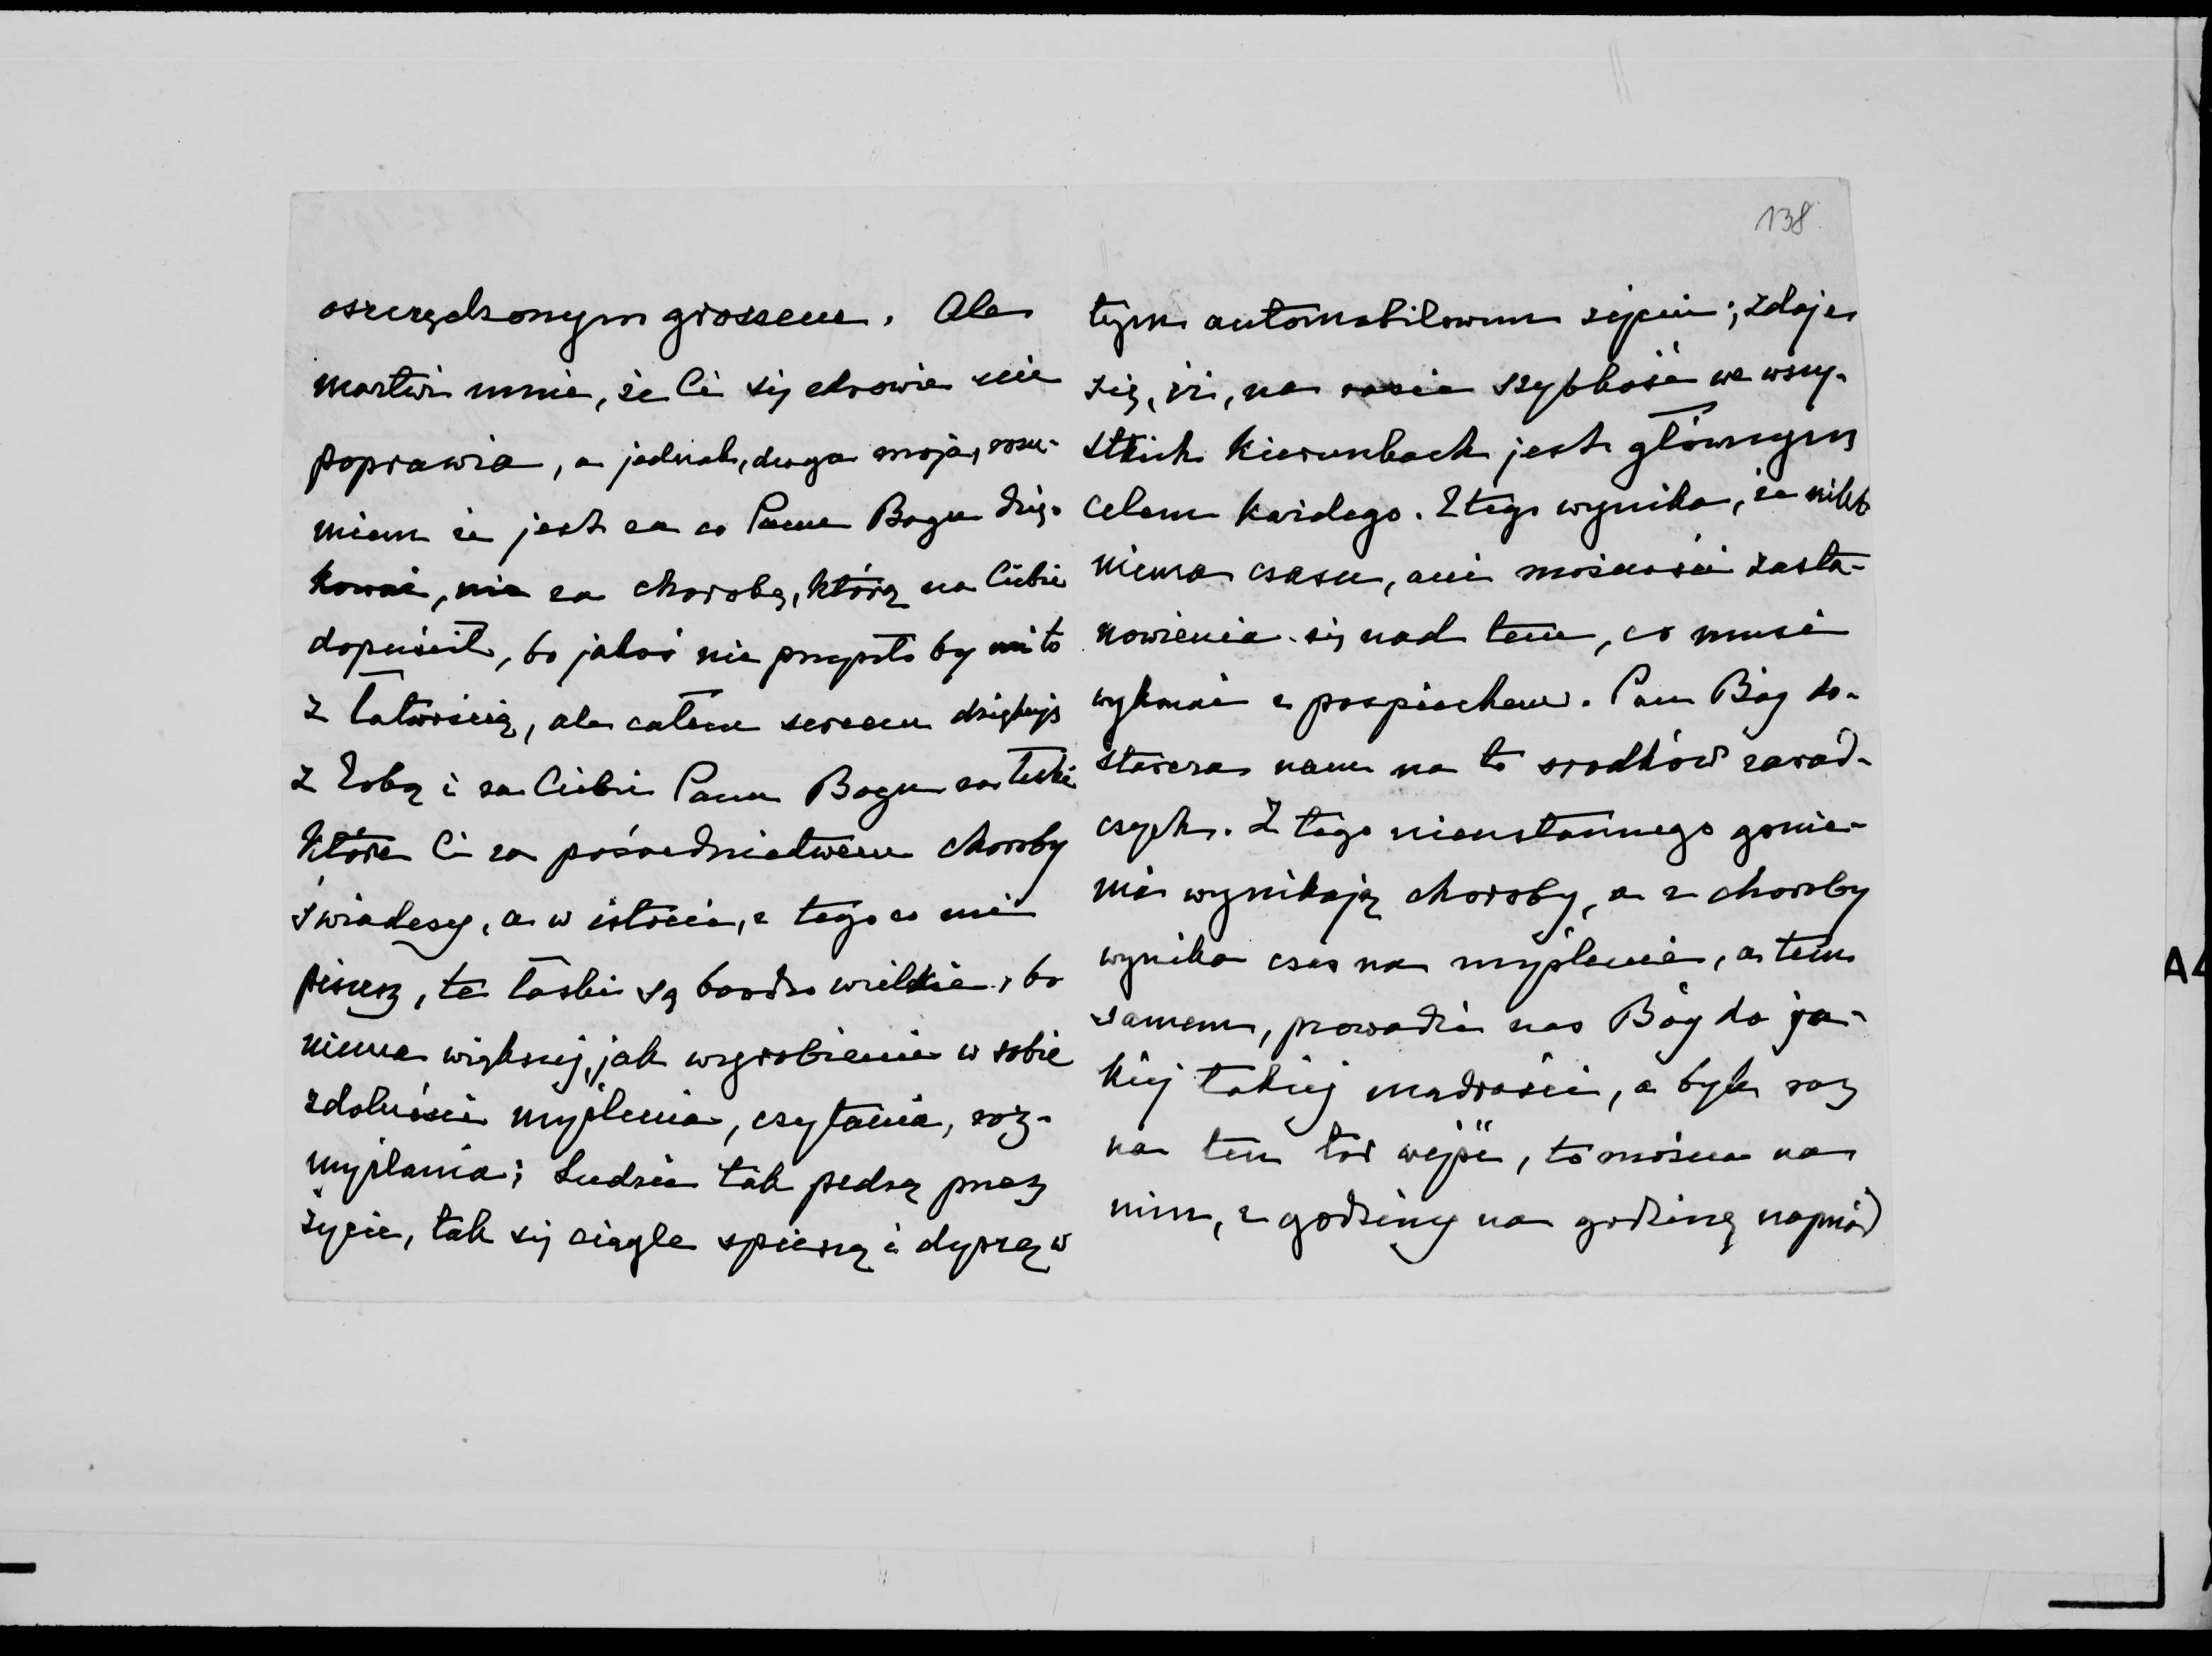 138.
oszczędzonym groszem. Ale
martwi mnie, że Ci się zdrowie nie
poprawia, a jednak, droga moja, rozu-
miem że jest za co Panu Bogu dzię-
kować, nie za chorobę, którą na Ciebie
dopuścił, bo jakoś nie przyszło by mi to
z łatwością, ale całem sercem dziękuję
z Tobą i za Ciebie Panu Bogu za łaski
które Ci za pośrednictwem choroby
świadczy, a w istocie, z tego co mi
piszesz, te łaski są bardzo wielkie, bo
niema większej, jak wyrobienie w sobie
zdolności myślenia, czytania, roz-
myślania; Ludzie tak pędzą przez
życie, tak się ciągle spieszą i dyszą w
tym automobilowym życiu; zdaje
się, iż, na razie szybkość we wszy-
stkich kierunkach jest głównym
celem każdego. Z tego wynika, że nikt
niema czasu, ani możności zasta-
nowienia się nad tem, co musi
wykonać z pospiechem. Pan Bóg do-
starcza nam na to srodków zarad-
czych. Z tego nieustannego gonie-
nia wynikają choroby, a z choroby
wynika czas na myślenie, a tem
samem, prowadzi nas Bóg do ja-
kiej takiej mądrości, a byle raz
na ten tor wejść, to można na
nim, z godziny na godzinę naprzód
A4